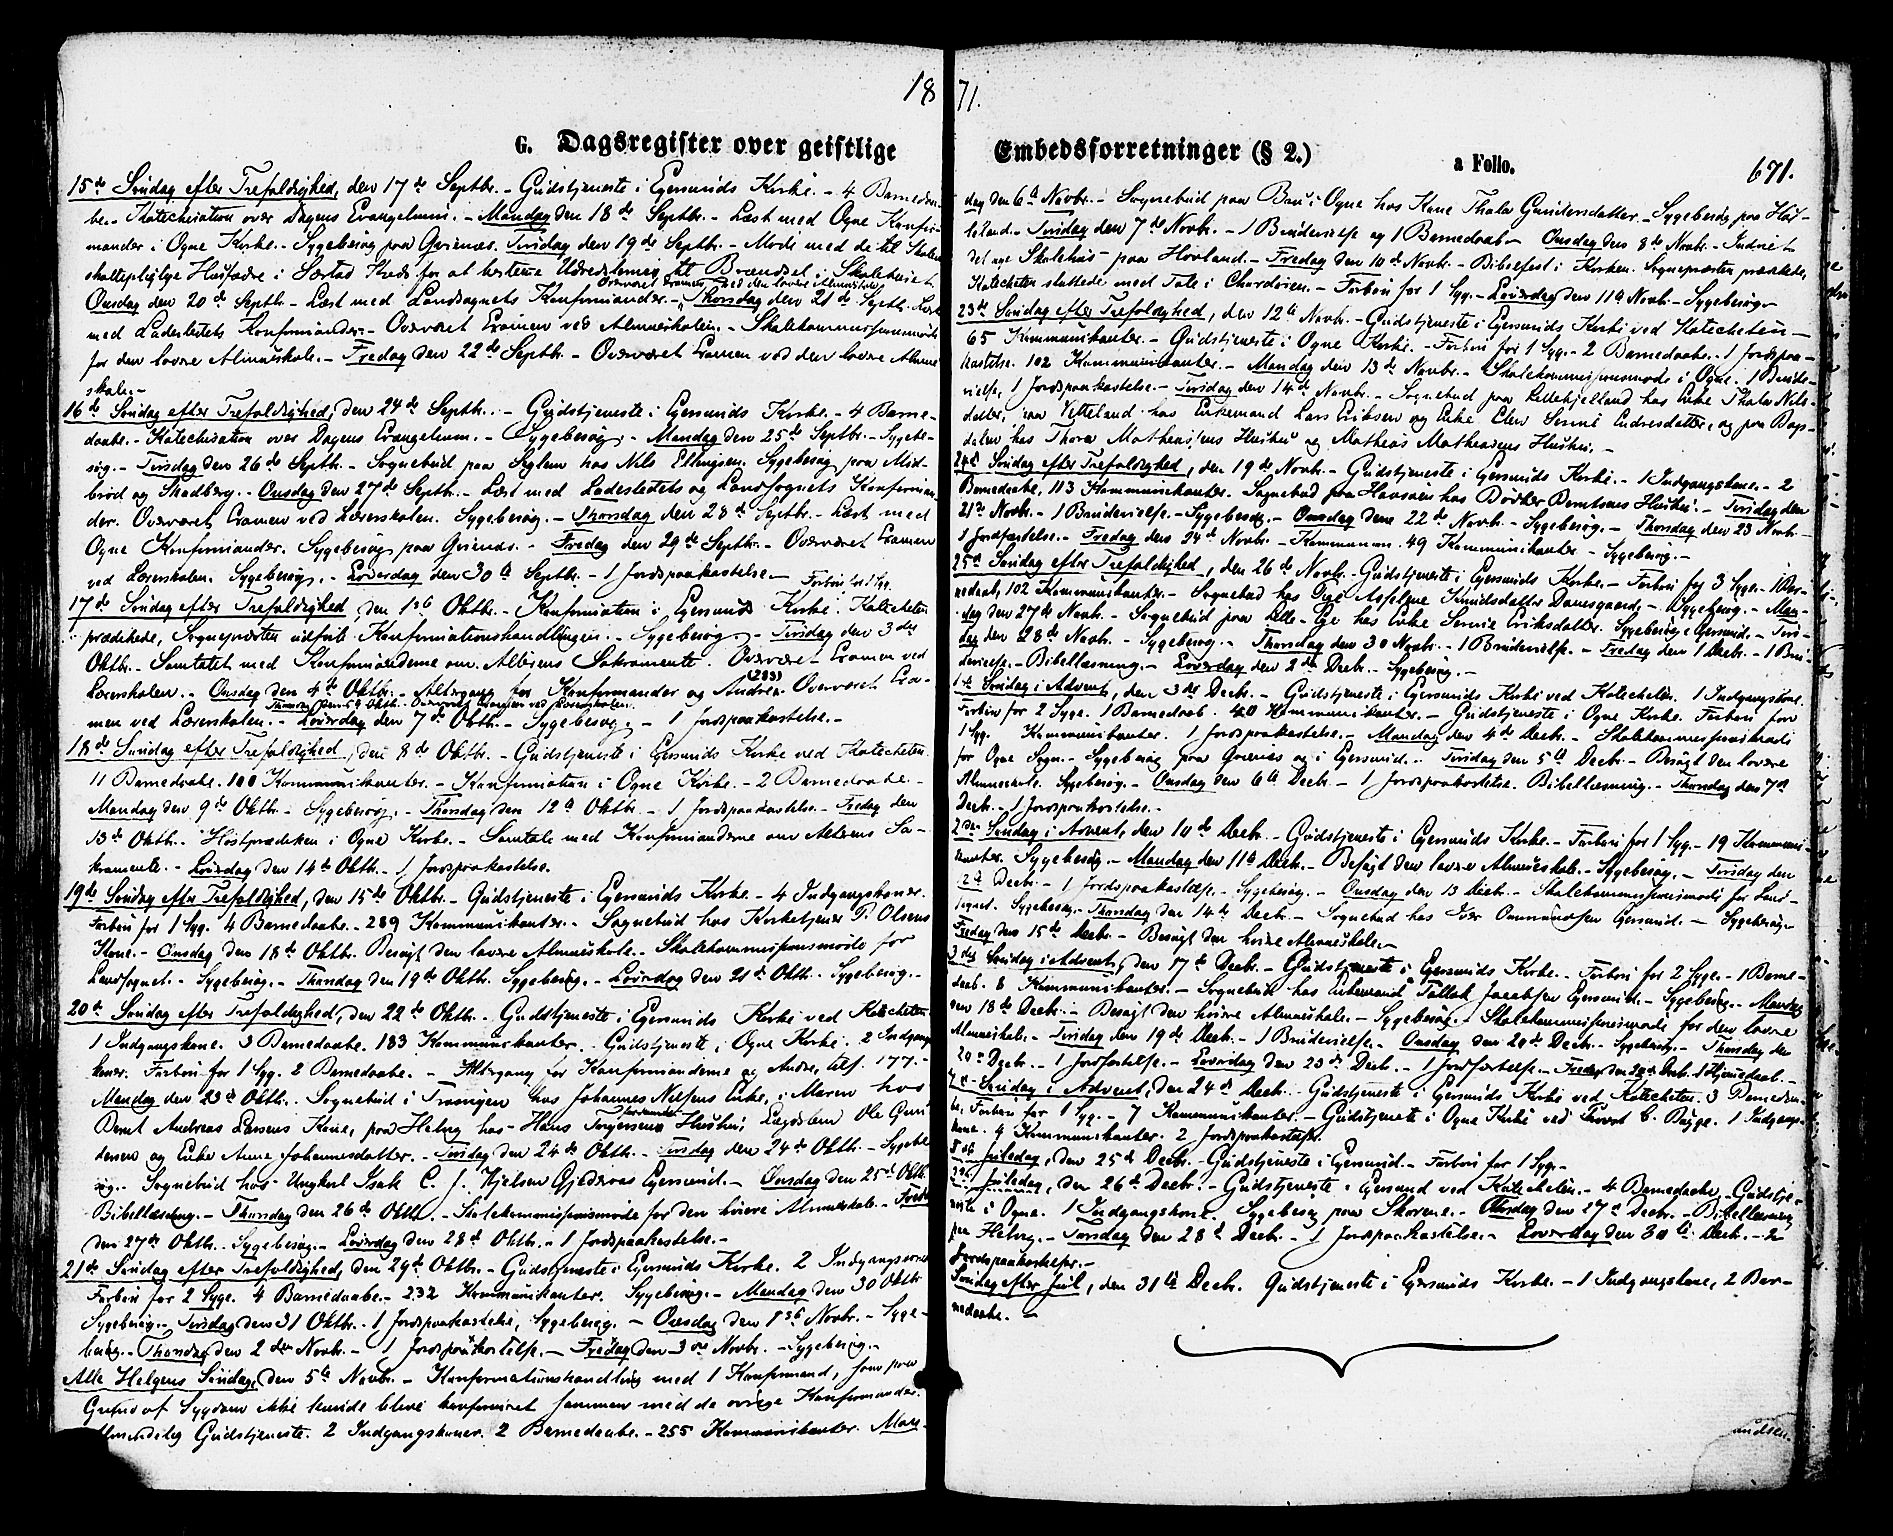 1871.
G. Dagsregister over geistlige Embedsforretninger (§ 2.)
a Folio.
671.
15de Søndag efter Trefoldighed, den 17de Septbr. - Gudstjeneste i Egersunds Kirke. - 4 Barnedaa-
be. - Katechisation over Dagens Evangelium. - Mandag den 18de Septbr. - Læst med Ogne Konfir-
mander i Ogne Kirke. - Sygebesøg paa Hvienæs. Tirsdag den 19de Septbr. - Møde med de til Skolen
skattepligtige Husfædre i Kreds for at bestemme til Brændsel i Skolehuset.
Onsdag den 20de Septbr. - Læst med Landsognets Konfirmander. - Overværet Examen ved den lavere Almueskole. Thorsdag den 21de Septbr. Læst
med Ladestedets Konfirmander. - Overværet Examen ved Almueskolen. - Skolekommissionsmøde
for den lavere Almueskole. - Fredag den 22de Septbr. - Overværet Examen ved den lavere Almue-
skole. -
16de Søndag efter Trefoldighed, den 24de Septbr. - Gudstjeneste i Egersunds Kirke. - 4 Barne-
daabe. - Katechisation over Dagens Evangelium. - Sygebesøg. - Mandag den 25de Septbr. - Sygebe-
søg. - Tirsdag den 26de Septbr. - Sognebud paa Seglem hos Nils Ellingsen. Sygebesøg paa Mid-
brød og Skadberg. - Onsdag den 27de Septbr. - Læst med Ladestedets og Landsognets Konfirman-
der. Overværet Examen ved Lærerskolen. Sygebesøg. - Thorsdag den 28de Septbr. - Læst med
Ogne Konfirmander. Sygebesøg paa - Fredag den 29de Septbr. - Overværet Examen
ved Lærerskolen. Sygebesøg. - Løverdag den 30te Septbr. - 1 Jordspaakastelse. - Forbøn for 1 Syg.
17de Søndag efter Trefoldighed, den 1ste Oktbr. - Konfirmation i Egersunds Kirke. Katecheten
prædikede, Sognepræsten udførte Konfirmationshandlingen. - Sygebesøg. - Tirsdag den 3die
Oktbr. - Samtalet med Konfirmanderne om Alterens Sakramente. Overværet Examen ved
Lærerskolen. - Onsdag den 4de Oktbr. - Altergang for Konfirmander og Andre (283) Overværet Exa-
men ved Lærerskolen. - Thorsdag den 5te Oktbr. Overværet Examen ved Lærerskolen. Løverdag den 7de Oktbr. - Sygebesøg. - 1 Jordspaakastelse. -
18de Søndag efter Trefoldighed, den 8de Oktbr. - Gudstjeneste i Egersunds Kirke ved Katecheten.
11 Barnedaabe. 100 Kommunikanter. - Konfirmation i Ogne Kirke. - 2 Barnedaabe. -
Mandag den 9de Oktbr. - Sygebesøg. - Thorsdag den 12te Oktbr. - 1 Jordspaakastelse. - Fredag den
13de Oktbr. - Høstprædiken i Ogne Kirke. - Samtale med Konfirmanderne om Alterens Sa-
kramente. - Løverdag den 14de Oktbr. - 1 Jordspaakastelse.
19de Søndag efter Trefoldighed, den 15de Oktbr. - Gudstjeneste i Egersunds Kirke. - 4 Indgangskoner.
Forbøn for 1 Syg. 4 Barnedaabe. - 289 Kommunikanter. - Sognebud hos Kirketjener T. Olsens
Kone. - Onsdag den 18de Oktbr. Besøgt den lavere Almueskole. - Skolekommissionsmøde for
Landsognet. - Sygebesøg. - Thorsdag den 19de Oktbr. Sygebesøg. - Løverdag den 21de Oktbr. Sygebesøg. -
20de Søndag efter Trefoldighed, den 22de Oktbr. - Gudstjeneste i Egersunds Kirke ved Katecheten.
1 Indgangskone. 3 Barnedaabe. 183 Kommunikanter. - Gudstjeneste i Ogne Kirke. 2 Indgangs-
koner. Forbøn for 1 Syg. 2 Barnedaabe. - Altergang for Konfirmanderne og Andre, tils. 177. -
Mandag den 23de Oktbr. Sognebud i hos Johannes Nielsens Enke, i Maren hos
Bernt Andreas Larsens Kone, paa Helvig hos Hans Torgersens Hustru, Lægdslem Ole Gun-
dersen og Enke Anne Johannesdatter. - Tirsdag den 24de Oktbr. - Tirsdag den 24de Oktbr. - Sygebe-
søg. - Sognebud hos Ungkarl Isak C. J. Egersund. - Onsdag den 25de Oktbr.
Bibellæsning. - Thorsdag den 26de Oktbr. - Skolekommissionsmøde for den høiere Almueskole. - Fredag
den 27de Oktbr. Sygebesøg. - Løverdag den 28de Oktbr. - 1 Jordspaakastelse. -
21de Søndag efter Trefoldighed, den 29de Oktbr. - Gudstjeneste i Egersunds Kirke. 2 Indgangskoner.
Forbøn for 2 Syge. 4 Barnedaabe. - 232 Kommunikanter. Sygebesøg. - Mandag den 30 Oktbr.
Sygebesøg. - Tirsdag den 31 Oktbr. - 1 Jordspaakastelse, Sygebesøg. - Onsdag den 1ste Novbr. - Syge-
besøg. - Thorsdag den 2den Novbr. - 1 Jordspaakastelse. - Fredag den 3die Novbr. - Sygebesøg. -
Alle Helgens Søndag, den 5te Novbr. - Konfirmationshandling med 1 Konfirmand, som paa
Grund af Sygdom ikke kunde blive konfirmeret sammen med de øvrige Konfirmander.
Almindelig Gudstjeneste. 2 Indgangskoner. 2 Barnedaabe. - 255 Kommunikanter. Man-
dag den 6te Novbr. - Sognebud paa Bru i Ogne hos Kone Thala Gundersdatter. - Sygebesøg paa
- Tirsdag den 7de Novbr. - 1 Brudevielse og 1 Barnedaab. - Onsdag den 8de Novbr. - Indviet
det nye Skolehus paa Hovland. - Fredag den 10de Novbr. - Bibelfest i Kirken. Sognepræsten prædikede,
Katecheten sluttede med Tale i Chordøren. - Forbøn for 1 Syg. - Løverdag den 11te Novbr. - Sygebesøg. -
23de Søndag efter Trefoldighed, den 12te Novbr. - Gudstjeneste i Egersunds Kirke ved Katecheten. -
65 Kommunikanter. - Gudstjeneste i Ogne Kirke. - Forbøn for 1 Syg. - 2 Barnedaabe. - 1 Jordspaa-
kastelse. 102 Kommunikanter. - Mandag den 13de Novbr. - Skolekommissionsmøde i Ogne. 1 Brude-
vielse, 1 Jordspaakastelse. - Tirsdag den 14de Novbr. - Sognebud paa Lillehjelland hos Enke Thala Nils-
datter, paa Vetteland hos Enkemand Lars Eriksen og Enke Elen Serine Endresdatter, og paa
hos Thore Mathesens Hustru og Mathias Mathiasens Hustru. -
24de Søndag efter Trefoldighed, den 19de Novbr. - Gudstjeneste i Egersunds Kirke. - 1 Indgangskone. - 2
Barnedaabe, 113 Kommunikanter. Sognebud paa Havsøen hos Bødker Berntsens Hustru. - Tirsdag den
21de Novbr. - 1 Brudevielse. - Sygebesøg. - Onsdag den 22de Novbr. - Sygebesøg. - Thorsdag den 23 Novbr. -
1 Jordfæstelse. - Fredag den 24de Novbr. - Kommunion. 49 Kommunikanter. - Sygebesøg. -
25de Søndag efter Trefoldighed, den 26de Novbr. - Gudstjeneste i Egersunds Kirke. - Forbøn for 3 Syge. - 1 Bar-
nedaab, 102 Kommunikanter. - Sognebud hos Pige Asseline Knudsdatter Damsgaard. - Sygebesøg. - Man-
dag den 27de Novbr. - Sognebud paa Lille-Ege hos Enke Serine Eriksdatter. Sygebesøg i Egersund. - Tirs-
dag den 28de Novbr. - Sygebesøg. - Thorsdag den 30 Novbr. - 1 Brudevielse. - Fredag den 1 Decbr. - 1 Bru-
devielse. - Bibellæsning. - Løverdag den 2de Decbr. - Sygebesøg. -
1ste Søndag i Advent, den 3die Decbr. - Gudstjeneste i Egersunds Kirke ved Katecheten. 1 Indgangskone.
Forbøn for 2 Syge. 1 Barnedaab. 40 Kommunikanter. - Gudstjeneste i Ogne Kirke. Forbøn for
1 Syg. Kommunikanter. 1 Jordspaakastelse. - Mandag den 4de Decbr. - Skolekommissionsmøde
for Ogne Sogn. - Sygebesøg paa og i Egersund. - Tirsdag den 5te Decbr. - Besøgt den lavere
Almueskole. Sygebesøg. - Onsdag den 6te Decbr. - 1 Jordspaakastelse. Bibellæsning. - Thorsdag den 7de
Decbr. - 1 Jordspaakastelse. -
2den Søndag i Advent, den 10de Decbr. - Gudstjeneste i Egersunds Kirke. - Forbøn for 1 Syg. - 19 Kommuni-
kanter. Sygebesøg. - Mandag den 11te Decbr. - Besøgt den lavere Almueskole. - Sygebesøg. - Tirsdag den
12te Decbr. - 1 Jordspaakastelse. - Sygebesøg. - Onsdag den 13 Decbr. - Skolekommissionsmøde for Land-
sognet. Sygebesøg. - Thorsdag den 14de Decbr. - Sognebud hos Iver Ommundsen Egersund. - Sygebesøg. -
Fredag den 15de Decbr. - Besøgt den høiere Almueskole. -
3die Søndag i Advent, den 17de Decbr. - Gudstjeneste i Egersunds Kirke. - Forbøn for 2 Syge. - 1 Barne-
daab. 8 Kommunikanter. - Sognebud hos Enkemand Tallak Jacobsen Egersund. - Sygebesøg. Mandag
den 18de Decbr. - Besøgt den høiere Almueskole. - Sygebesøg. - Skolekommissionsmøde for den lavere
Almueskole. - Tirsdag den 19de Decbr. - 1 Brudevielse. - Onsdag den 20de Decbr. - Sygebesøg. - Thorsdag den
Decbr. - 1 Jordfæstelse. - Løverdag den 23de Decbr. - 1 Jordfæstelse. - Fredag den Decbr. 1 Hjemmedaab. -
4de Søndag i Advent, den 24de Decbr. Gudstjeneste i Egersunds Kirke ved Katecheten. 3 Barnedaa-
be, Forbøn for 1 Syg. - 7 Kommunikanter. - Gudstjeneste i Ogne Kirke ved Provst C. Bugge. 1 Indgangs-
kone. 4 Kommunikanter. 2 Jordspaakastelser.
1ste Juledag, den 25de Decbr. - Gudstjeneste i Egersund. - Forbøn for 1 Syg. -
2den Juledag, den 26de Decbr. - Gudstjeneste i Egersund ved Katecheten. - 4 Barnedaabe. - Gudstje-
neste i Ogne. 1 Indgangskone. Sygebesøg paa - Onsdag den 27de Decbr. - Bibellæsning
paa Helvig. - Torsdag den 28de Decbr. - 1 Jordspaakastelse. - Løverdag den 30te Decbr. - 2
Jordspaakastelser. -
Søndag efter Juul, den 31te Decbr. Gudstjeneste i Egersunds Kirke. - 1 Indgangskone, 2 Bar-
nedaabe. -